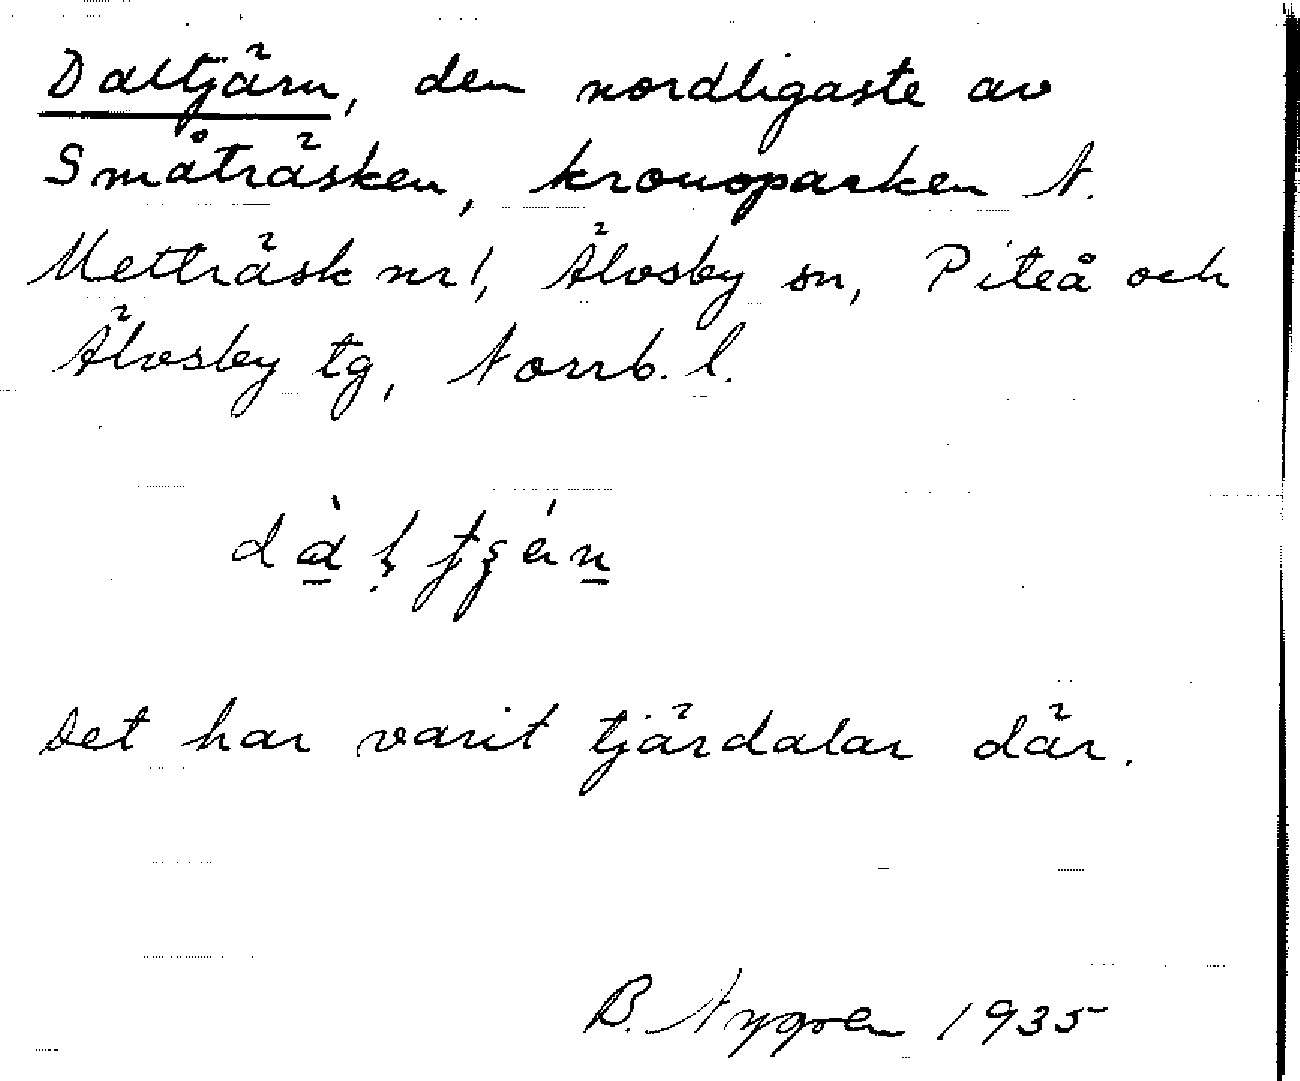 Daltjärn, den nordligaste av
Småträsken, kronoparken N.
Metträsk nr 1, Älvsby sn, Piteå och
Älvsby tg, Norrb. l.
Det har varit tjärdalar där.
B. Nygren 1935